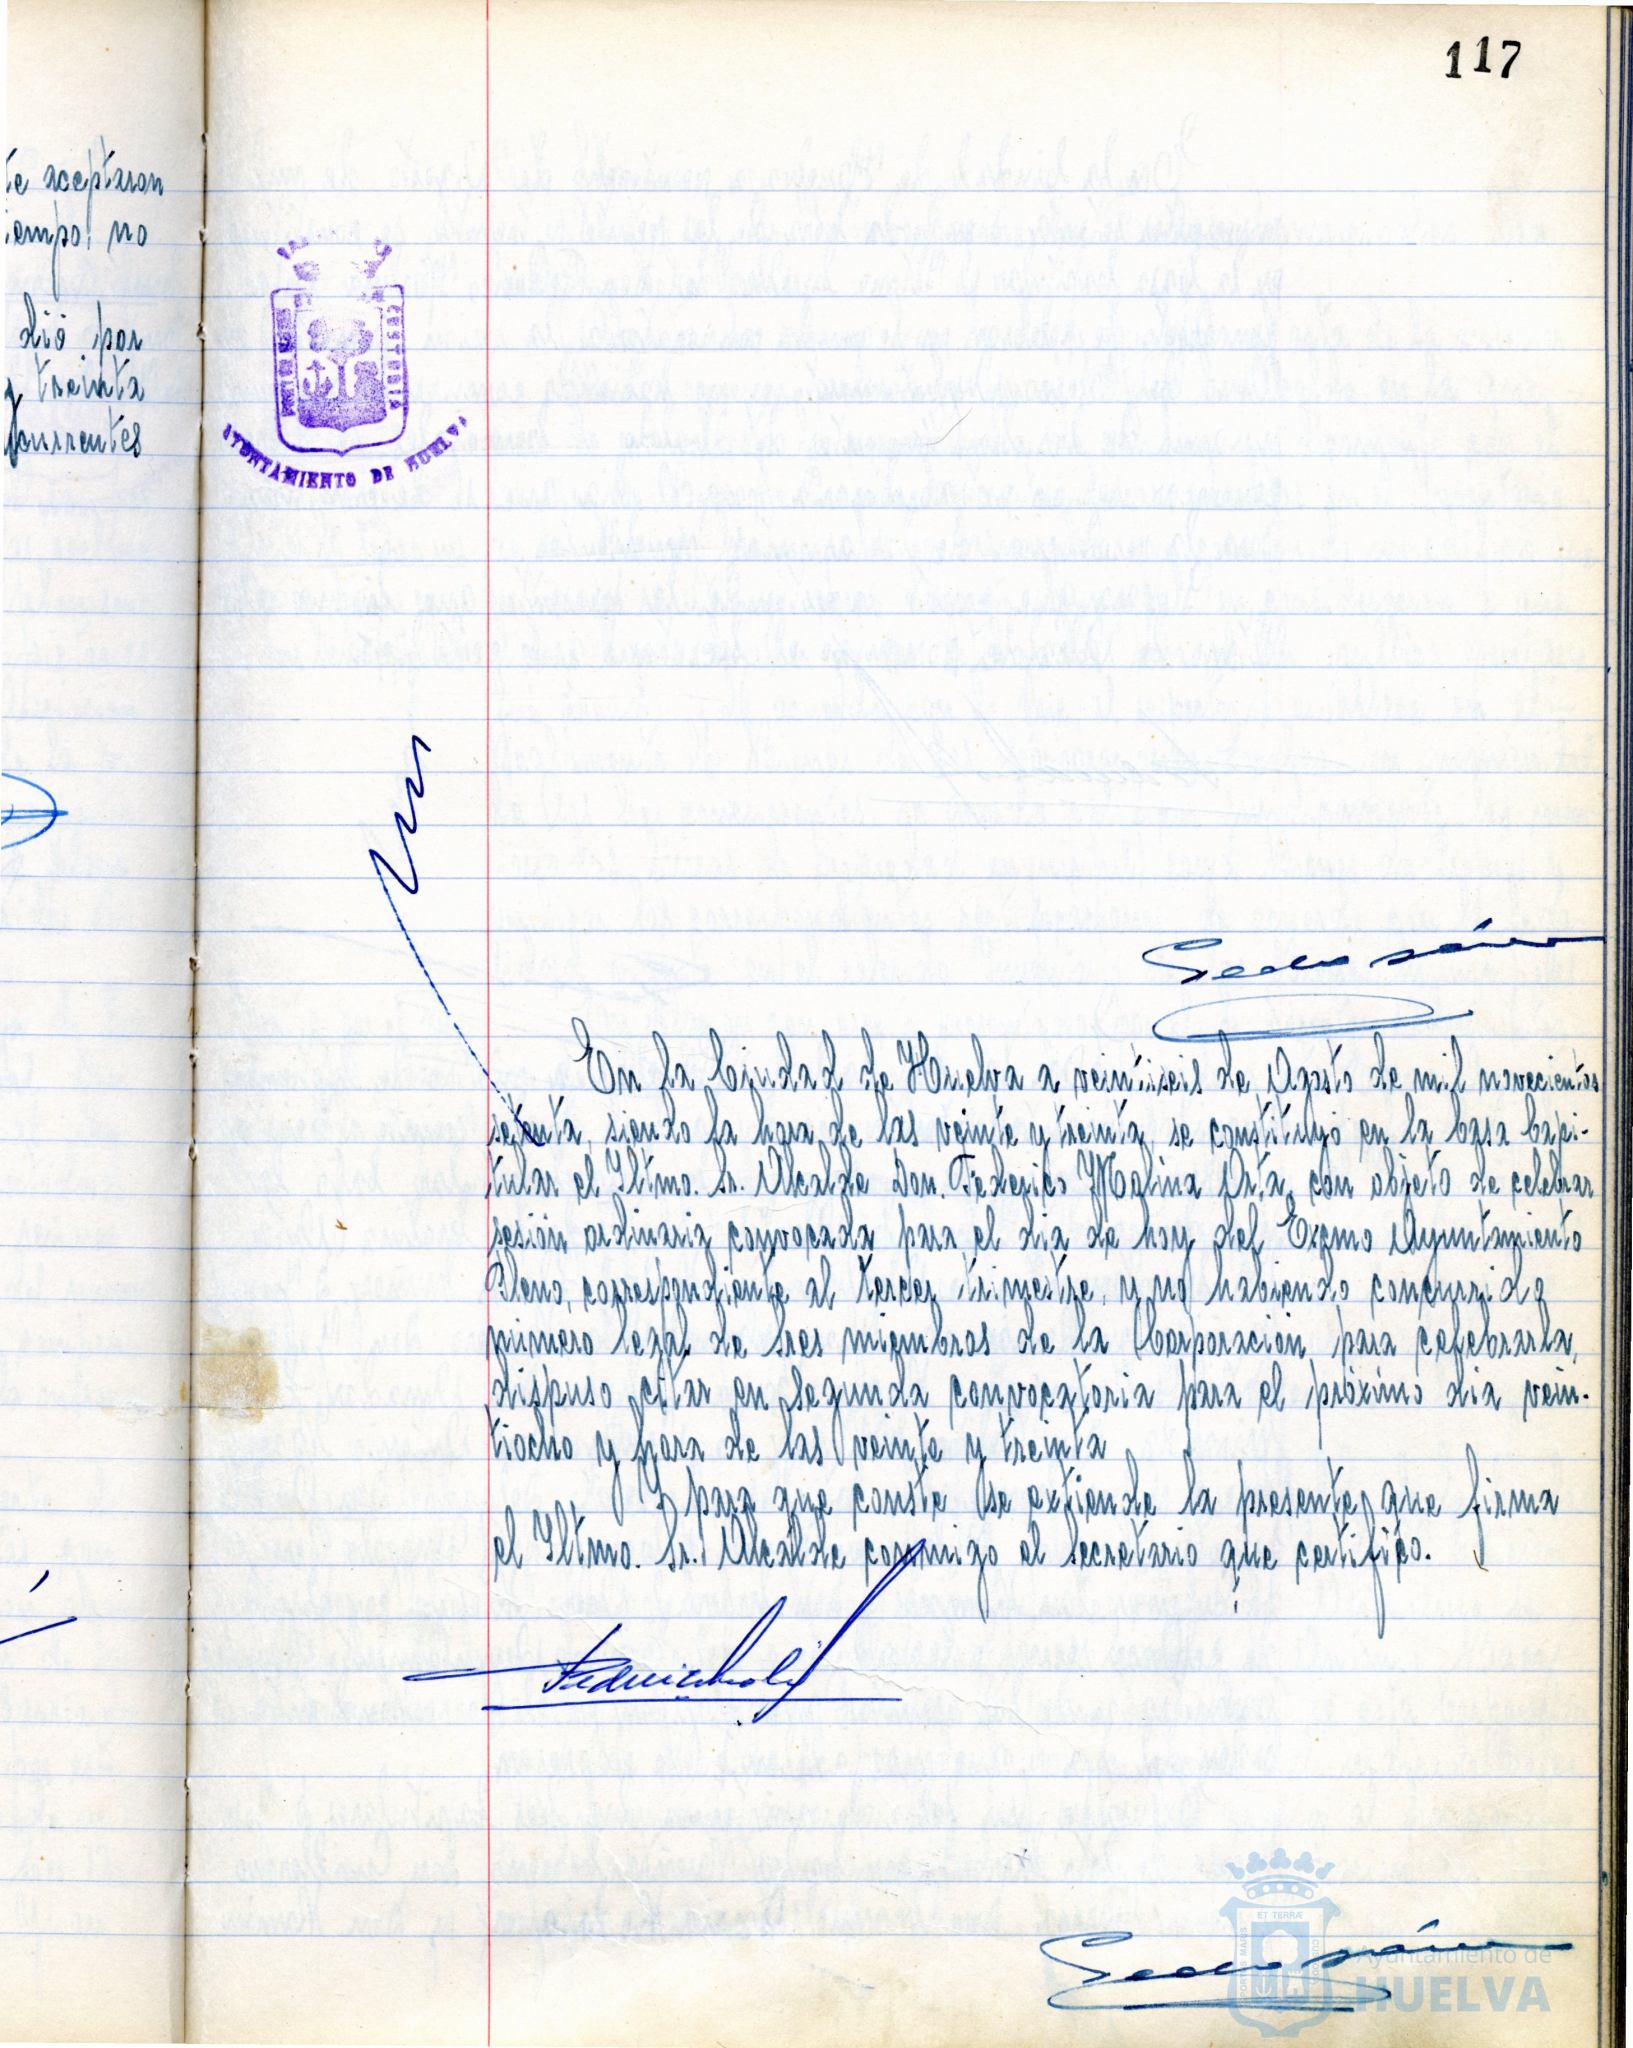 117
te aceptaron
iempo, no
dió por
y treinta
currentes
AYUNTAMIENTO DE HUELVA
En la Ciudad de Huelva a veintiseis de Agosto de mil novecientos
setenta, siendo la hora de las veinte y treinta, se constituyó en la Casa Capi-
tular el Iltmo. Sr. Alcalde Don. Federico Molina Orta, con objeto de celebrar
sesión ordinaria convocada para el dia de hoy del Excmo Ayuntamiento
Pleno, correspondiente al tercer trimestre, y no habiendo concurrido
número legal de Sres miembros de la Corporación para celebrarla,
dispuso citar en segunda convocatoria para el próximo dia vein-
tiocho y hora de las veinte y treinta
Y para que conste se extiende la presente que firma
el Iltmo. Sr. Alcalde conmigo el Secretario que certifico.
ET TERRÆ
Ayuntamiento de
HUELVA